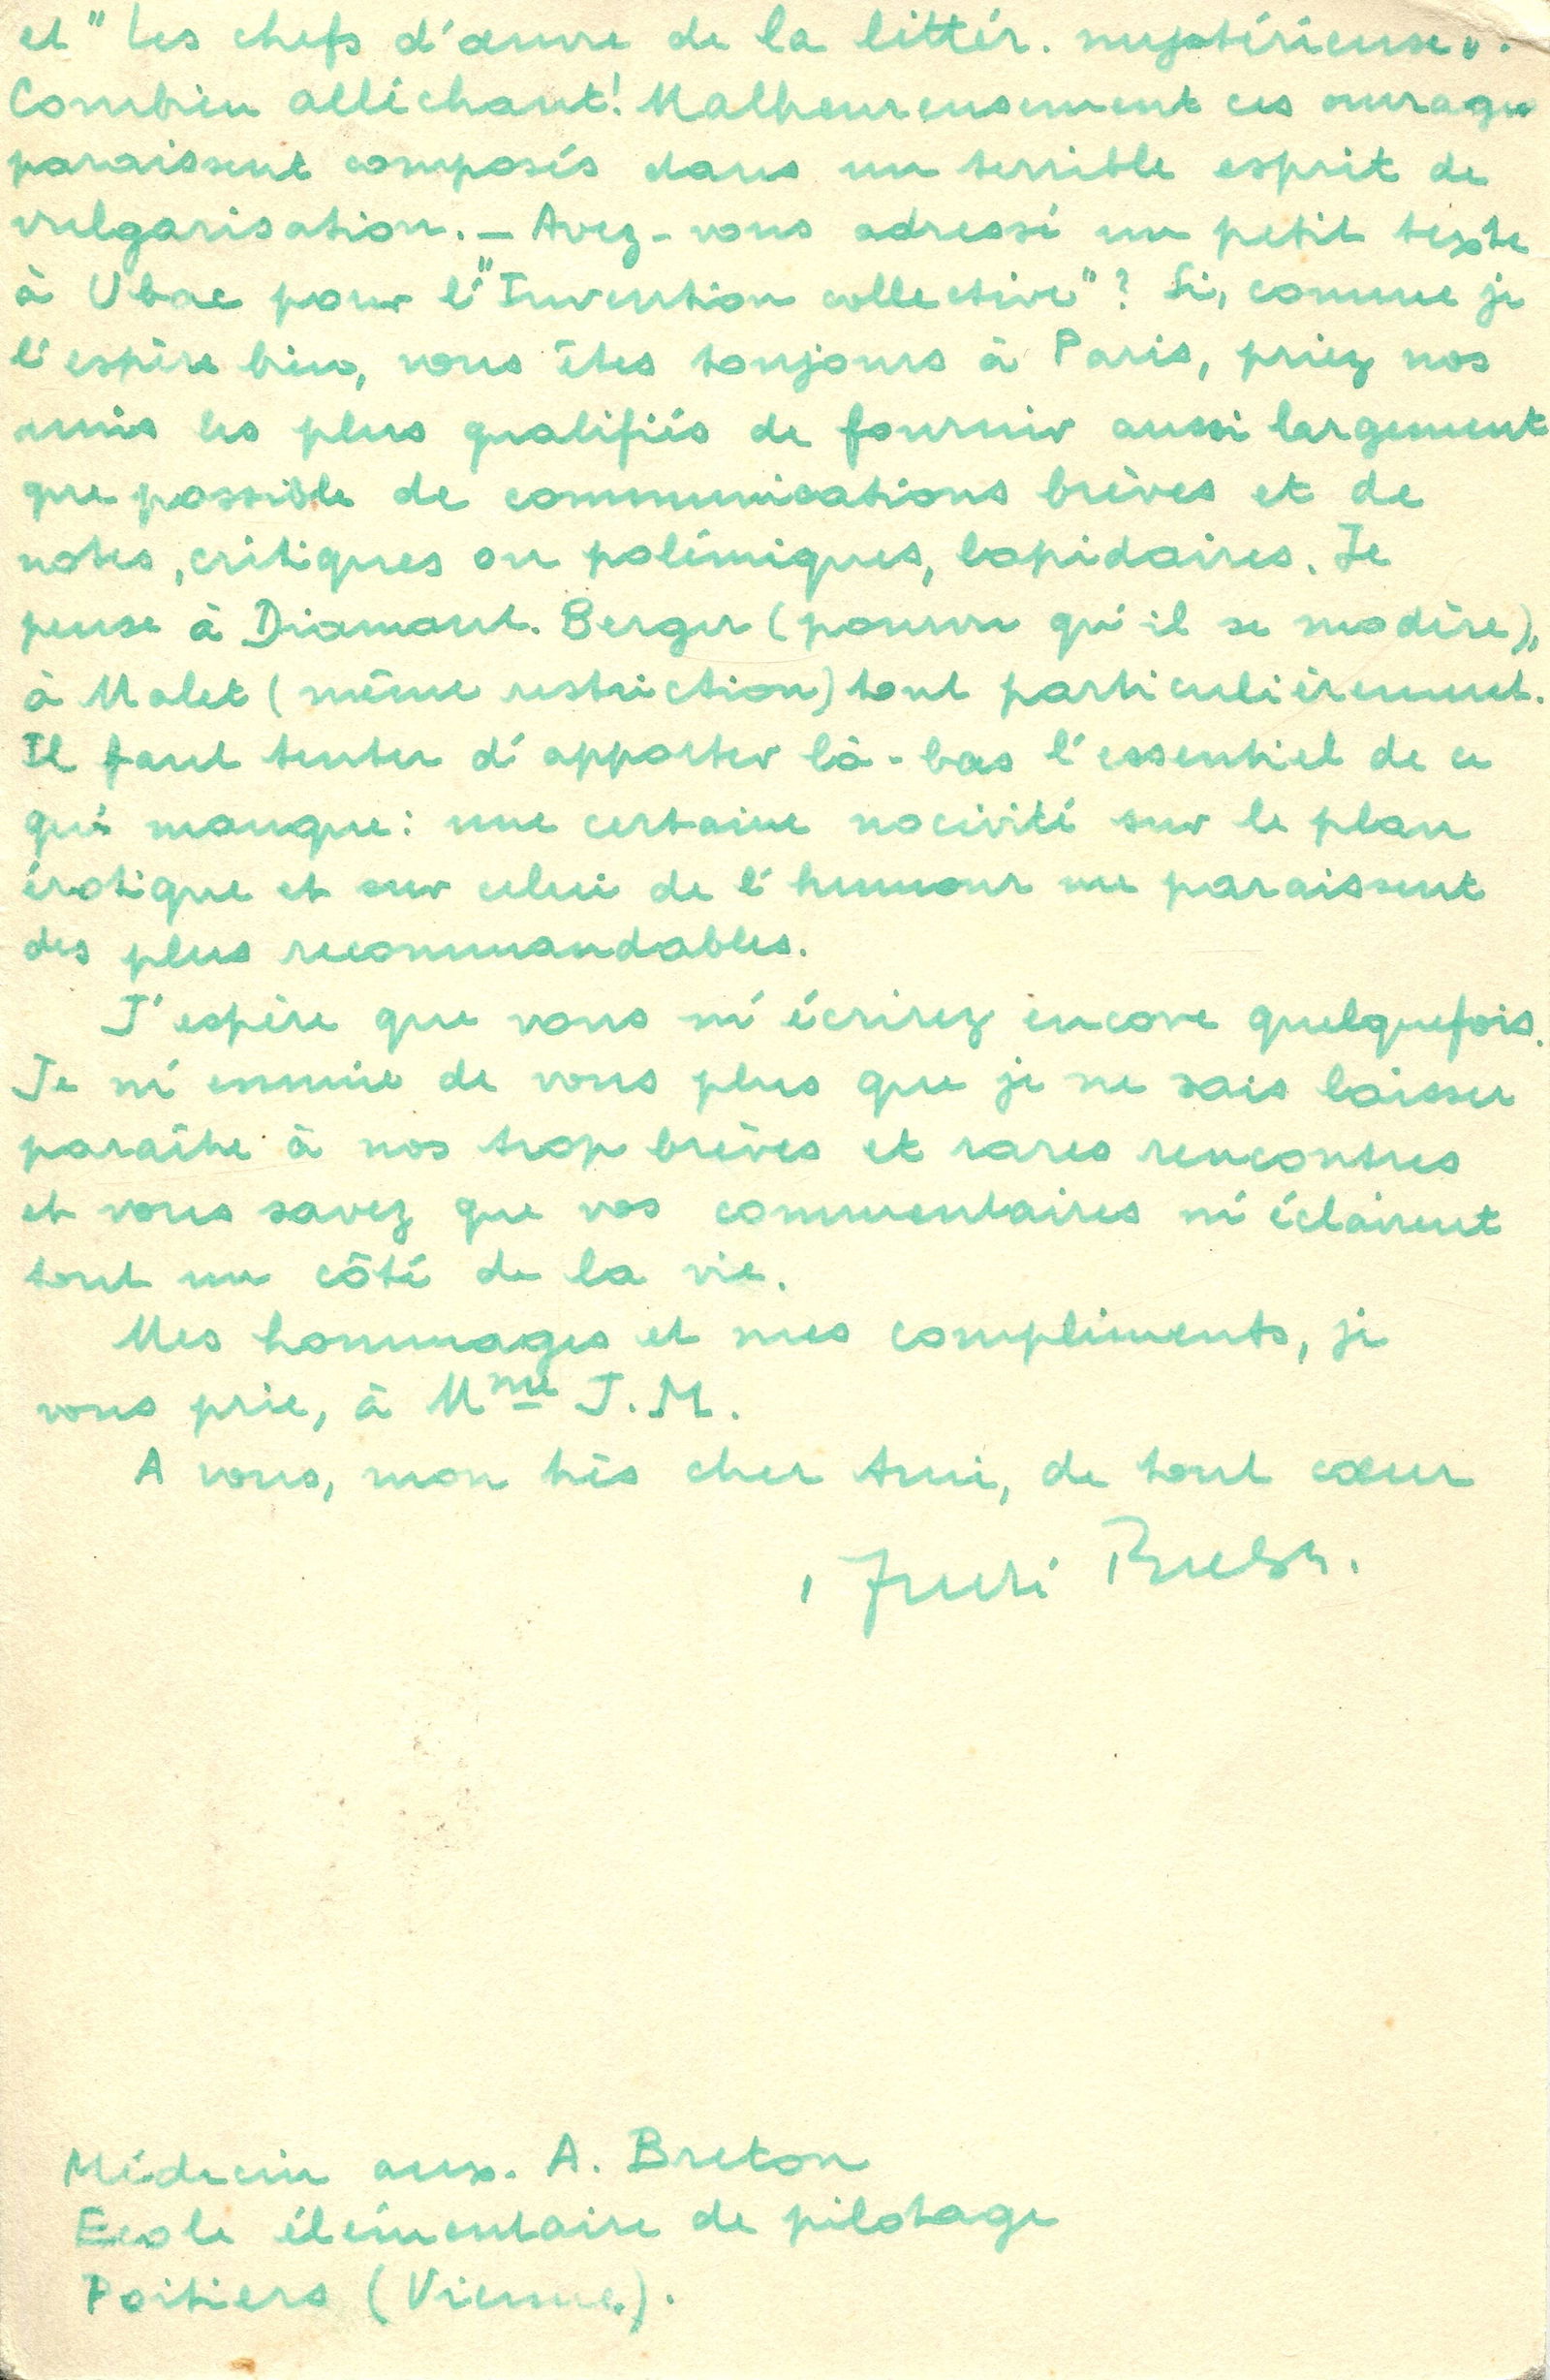 et "Les chefs d'œuvre de la littér. mystérieuse".
Combien alléchant! Malheureusement ces ouvrages
paraissent composés dans un terrible esprit de
vulgarisation. — Avez-vous adressé un petit texte
à Ubac pour l'"Invention collective"? Si, comme je
l'espère bien, vous êtes toujours à Paris, priez nos
amis les plus qualifiés de fournir aussi largement
que possible de communications brèves et de
notes, critiques ou polémiques, lapidaires. Je
pense à Diamant-Berger (pourvu qu'il se modère),
à Malet (même restriction) tout particulièrement.
Il faut tenter d'apporter là-bas l'essentiel de ce
qui manque: une certaine nocivité sur le plan
érotique et sur celui de l'humour me paraissent
des plus recommandables.
J'espère que vous m'écrirez encore quelquefois.
Je m'ennuie de vous plus que je ne sais laisser
paraître à nos trop brèves et rares rencontres
et vous savez que vos commentaires m'éclairent
tout un côté de la vie.
Mes hommages et mes compliments, je
vous prie, à Mme J. M.
A vous, mon très cher Ami, de tout cœur
André Breton.
Médecin aux. A. Breton
Ecole élémentaire de pilotage
Poitiers (Vienne).